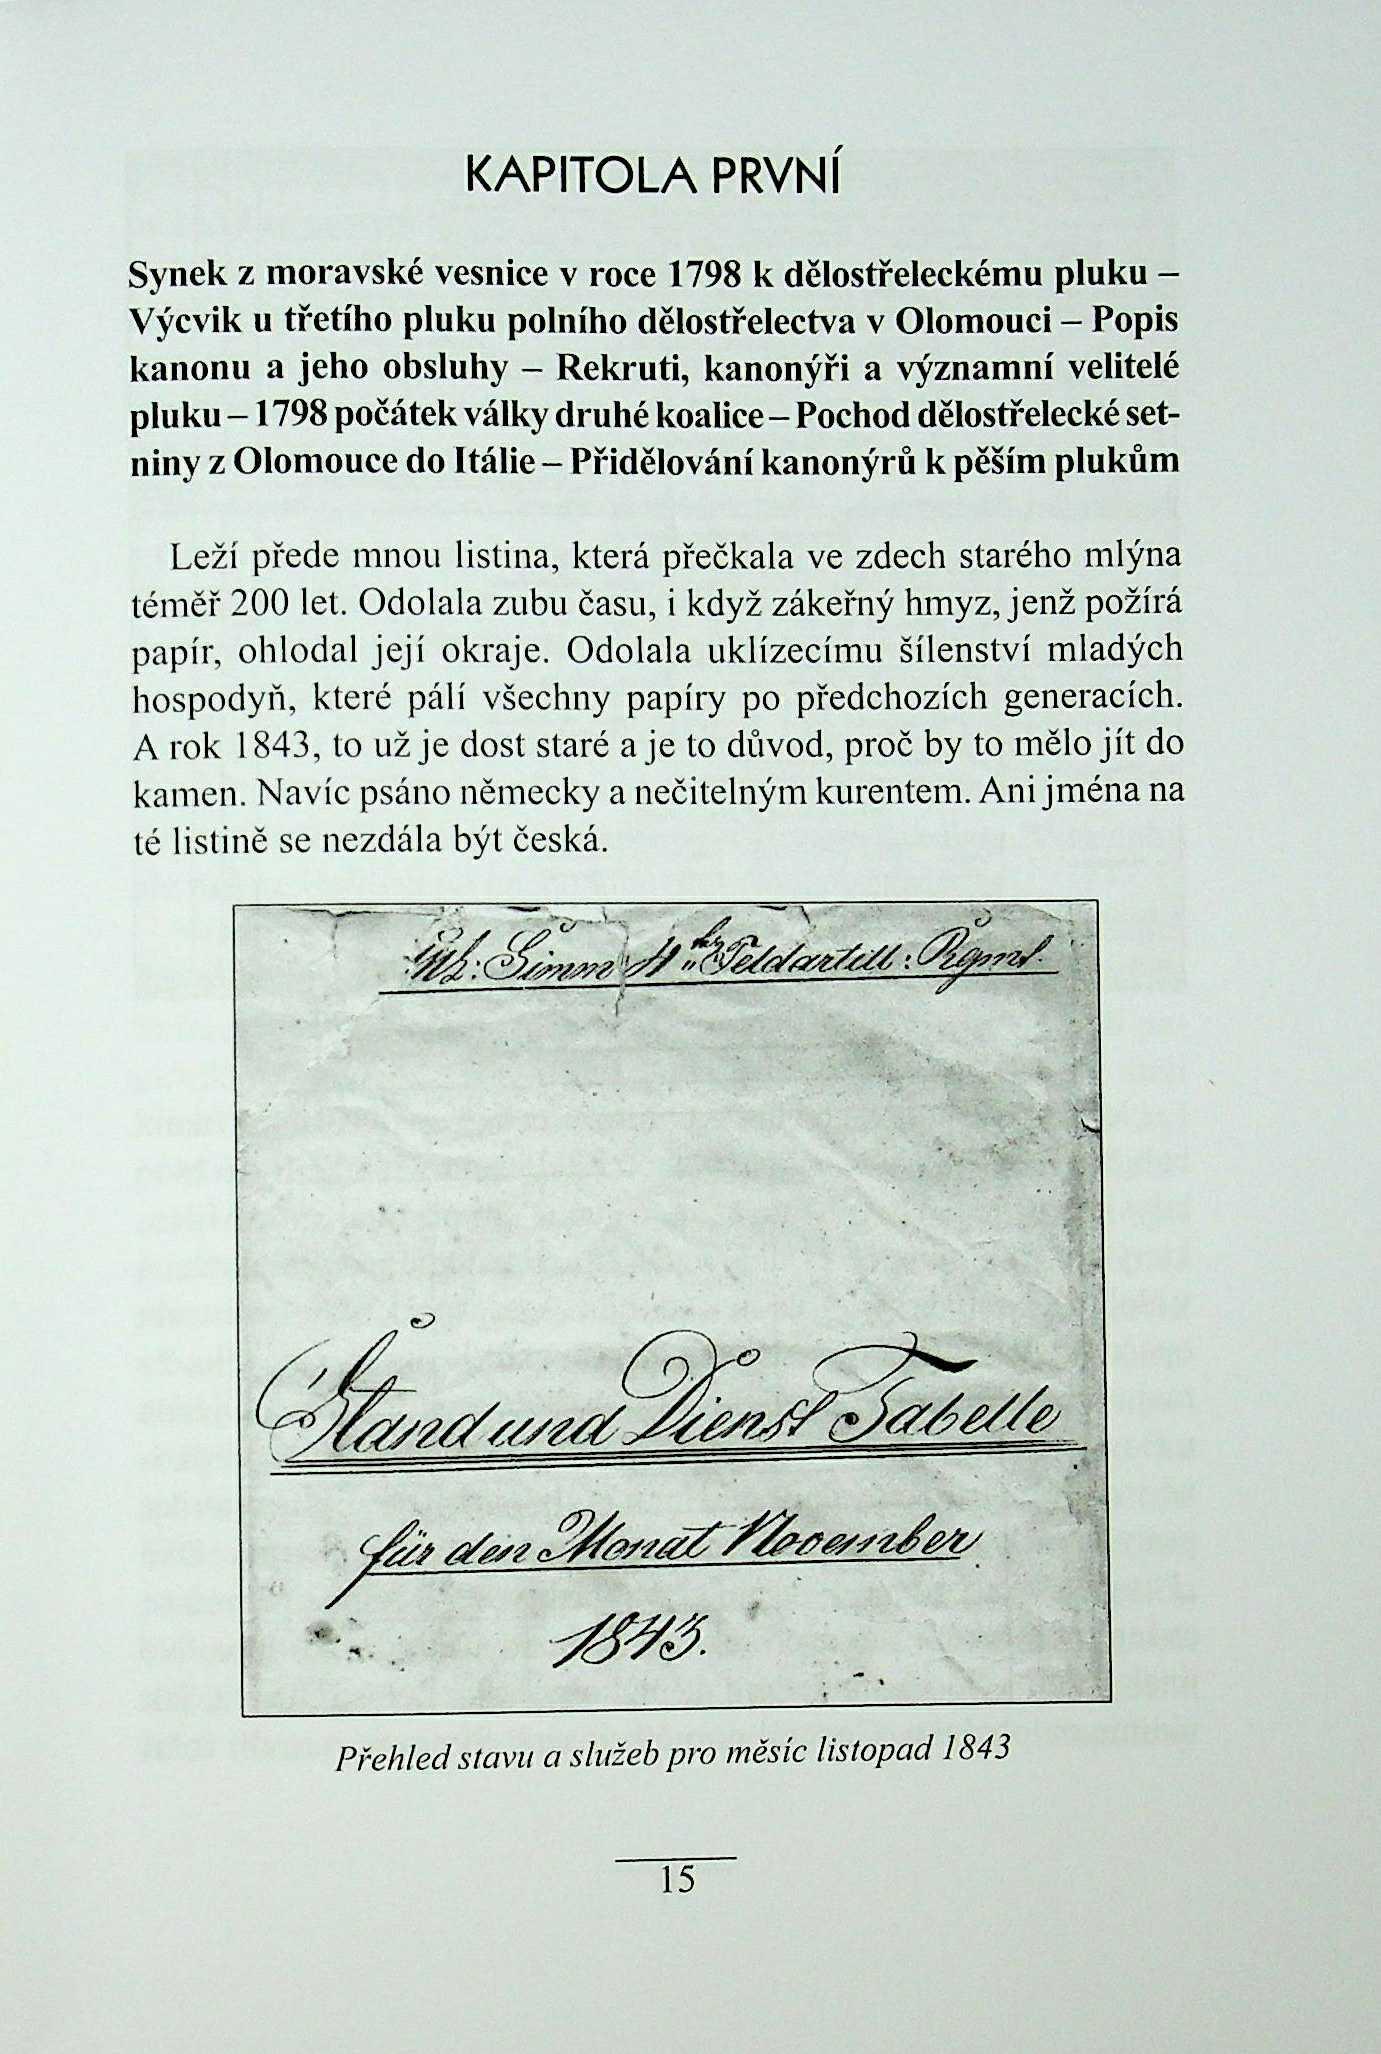 KAPITOLA PRVNÍ
Synek z moravské vesnice v roce 1798 k dělostřeleckému pluku –
Výcvik u třetího pluku polního dělostřelectva v Olomouci – Popis
kanonu a jeho obsluhy – Rekruti, kanonýři a významní velitelé
pluku – 1798 počátek války druhé koalice – Pochod dělostřelecké set-
niny z Olomouce do Itálie – Přidělování kanonýrů k pěším plukům
Leží přede mnou listina, která přečkala ve zdech starého mlýna
téměř 200 let. Odolala zubu času, i když zákeřný hmyz, jenž požírá
papír, ohlodal její okraje. Odolala uklízecímu šílenství mladých
hospodyň, které pálí všechny papíry po předchozích generacích.
A rok 1843, to už je dost staré a je to důvod, proč by to mělo jít do
kamen. Navíc psáno německy a nečitelným kurentem. Ani jména na
té listině se nezdála být česká.
Feldartill: Rgmt.
Stand und Dienst Tabelle
für den Monat November
1843.
Přehled stavu a služeb pro měsíc listopad 1843
15